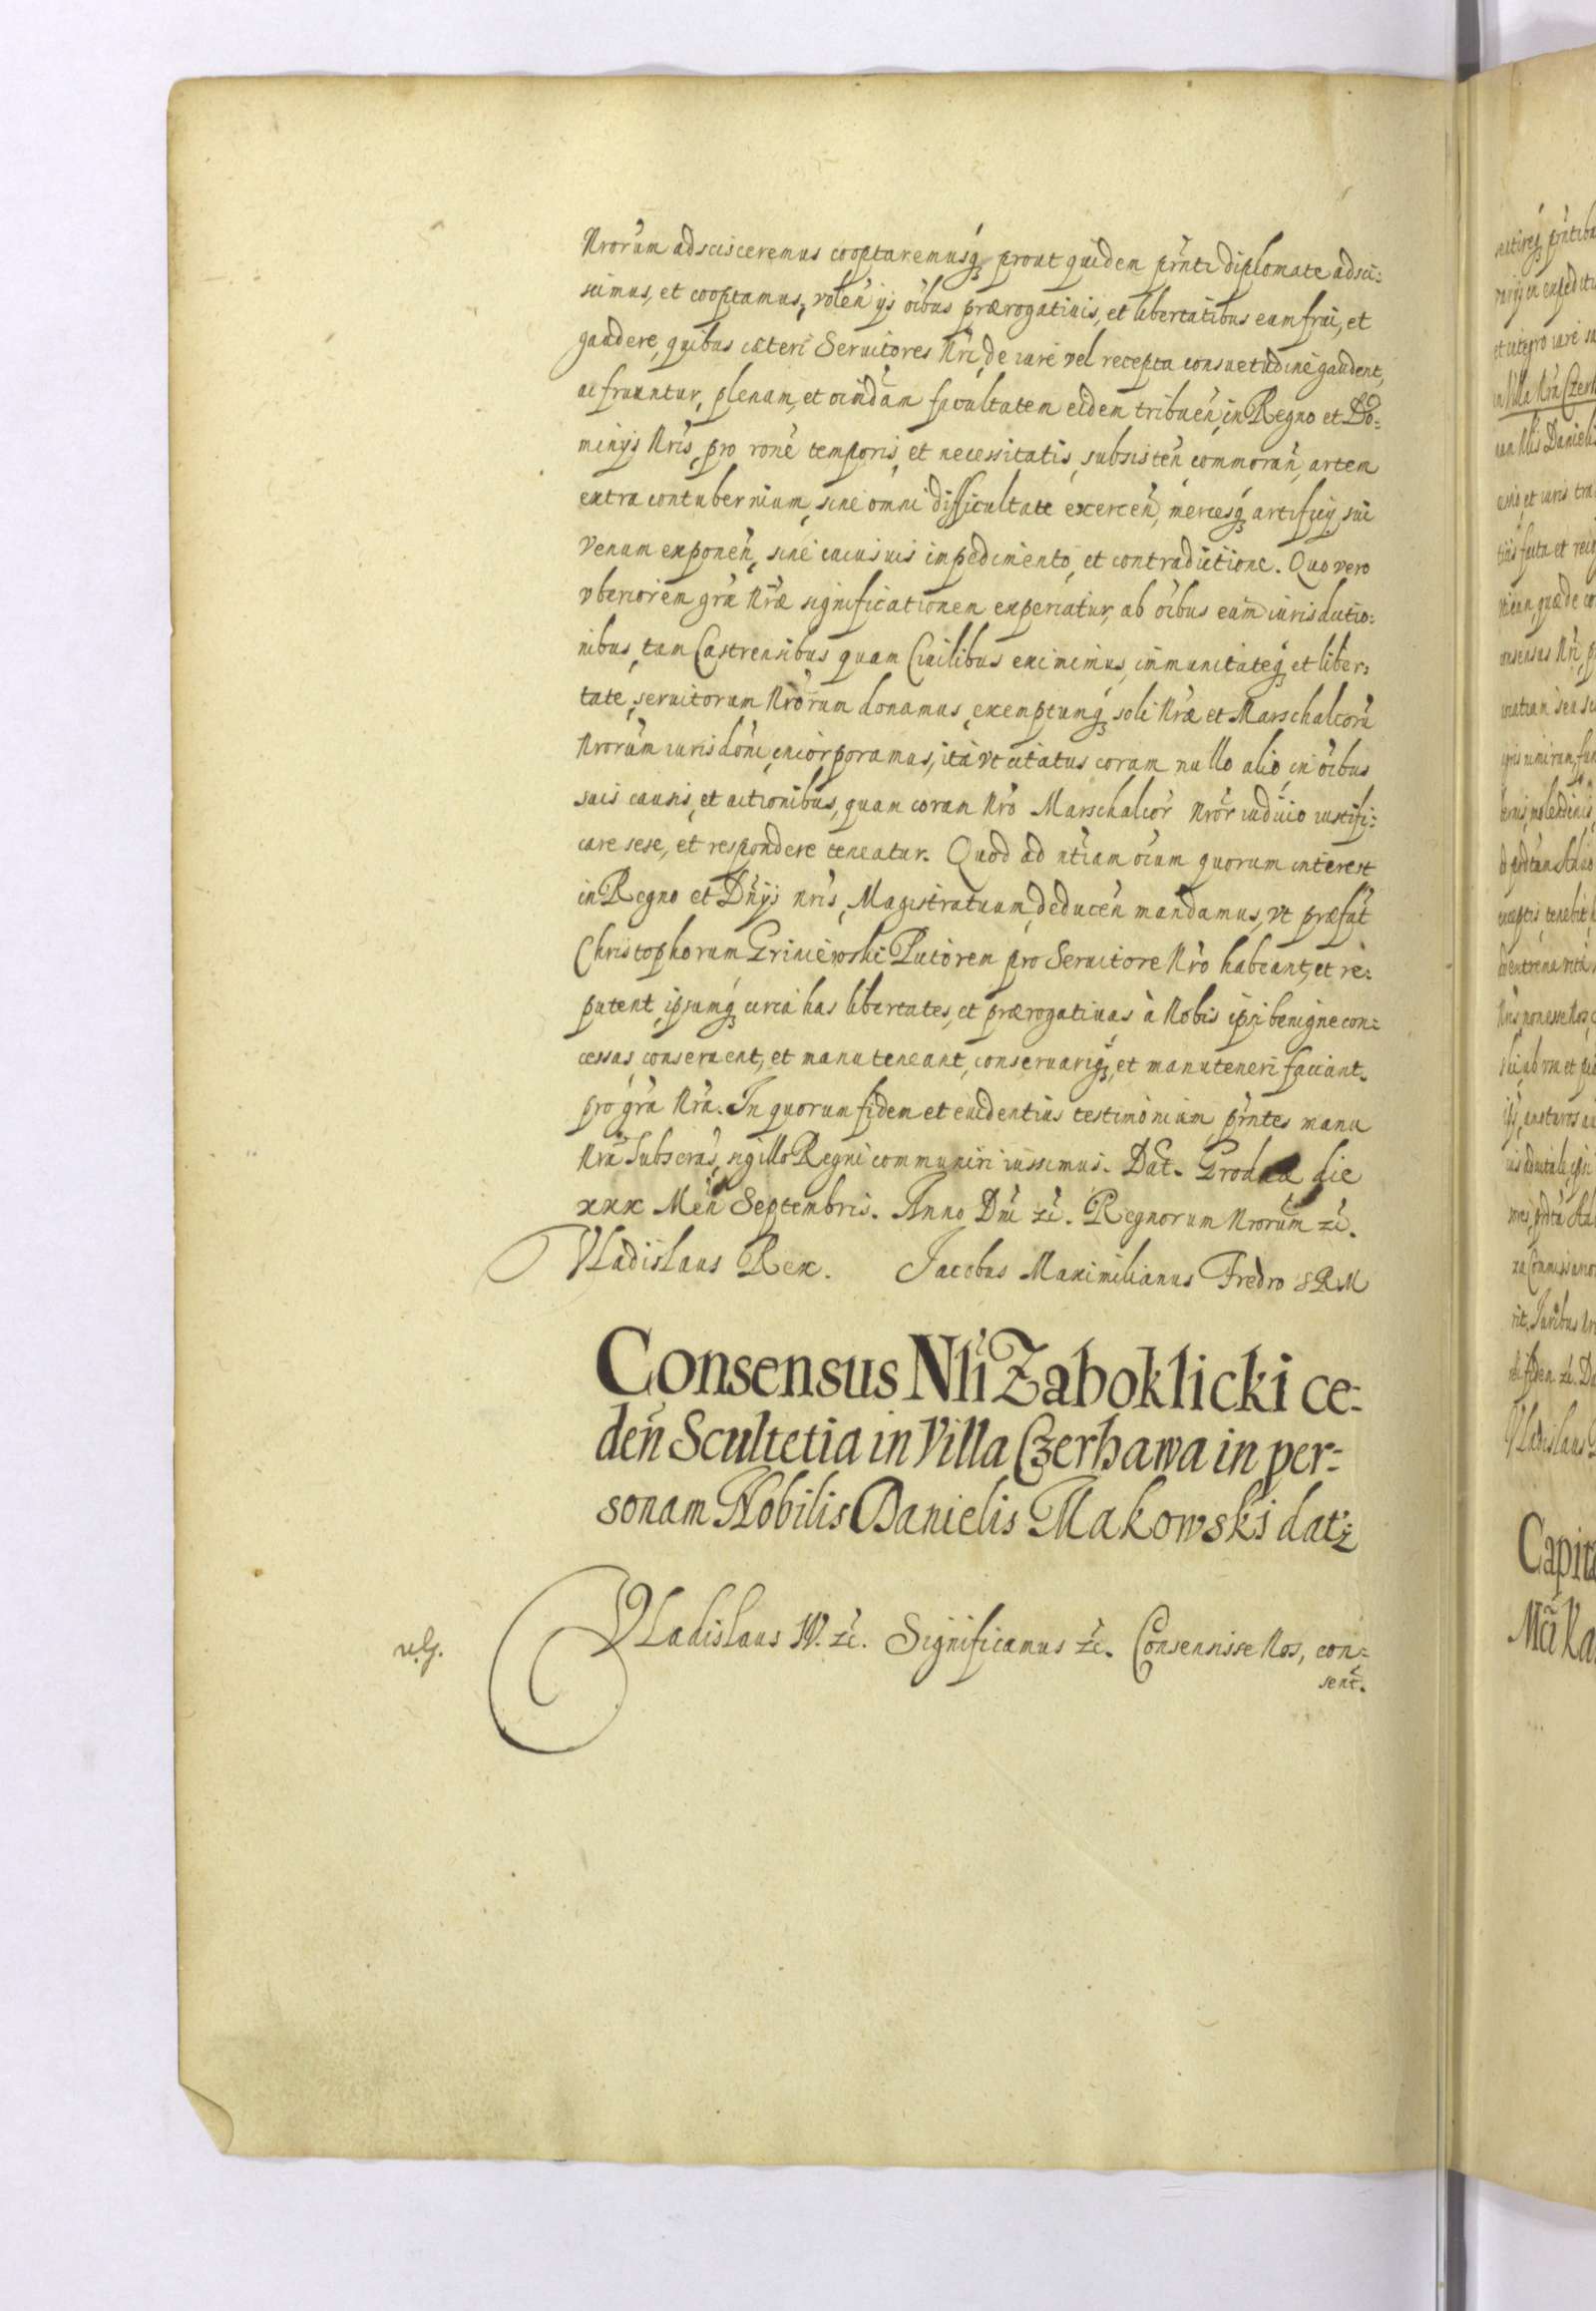 Nrorum adscisceremus cooptaremusq; prout quidem prñti diplomate adsci:
scimus, et cooptamus, volen̄ ijs oibus prærogatiuis, et libertatibus eum frui, et
gaudere, quibus cæteri Seruitores Nri, de iure vel recepta consuetudine gaudent,
ac fruuntur, plenam, et omīdam facultatem eidem tribuen̄, in Regno et Do:
minijs Nris, pro rōne temporis, et necessitatis, subsisten̄ commoran̄, artem
extra contubernium, sine omni difficultate exercen̄, mercesq; artificij sui
venum exponen̄, sine cuiusuis impedimento, et contradictione. Quo vero
vberiorem grã Nræ significationem experiatur, ab oibus eum iurisdictio:
nibus, tam Castrensibus quam Ciuilibus eximimus, immunitateq; et liber:
tate, seruitorum Nrorum donamus, exemptumq; soli Nræ et Marschalcorū
Nrorum iurisdōni, incorporamus, ità vt citatus coram nullo alio, in oibus
suis causis, et actionibus, quam coram Nrō Marschalcor̄ Nror̄ iudicio iustifi:
care sese, et respondere teneatur. Quod ad ntiam oium quorum interest
in Regno et Dnijs nris, Magistratuum, deducen̄ mandamus, vt præfat̄
Christophorum Griniewski Pictorem pro Seruitore Nro habeant, et re:
putent, ipsumq; circa has libertates, et prærogatiuas à Nobis ipsi benigne con:
cessas, conseruent, et manuteneant, conseruariq; et manuteneri faciant.
pro grã Nrã. In quorum fidem et euidentius testimonium prñtes manu
Nrã Subscras, sigillo Regni communiri iussimus. Dat. Grodnæ die
xxx Men̄ Septembris. Anno Dni zc̄. Regnorum Nrorum zc̄.
Vladislaus Rex. Jacobus Maximilianus Fredro SRM
Consensus Nli Zaboklicki ce:
den̄ Scultetia in Villa Czerhawa in per:
sonam Nobilis Danielis Makowski dat;
Vladislaus IV. zc̄. Significamus zc̄. Consensisse Nos, con:
sent̄.